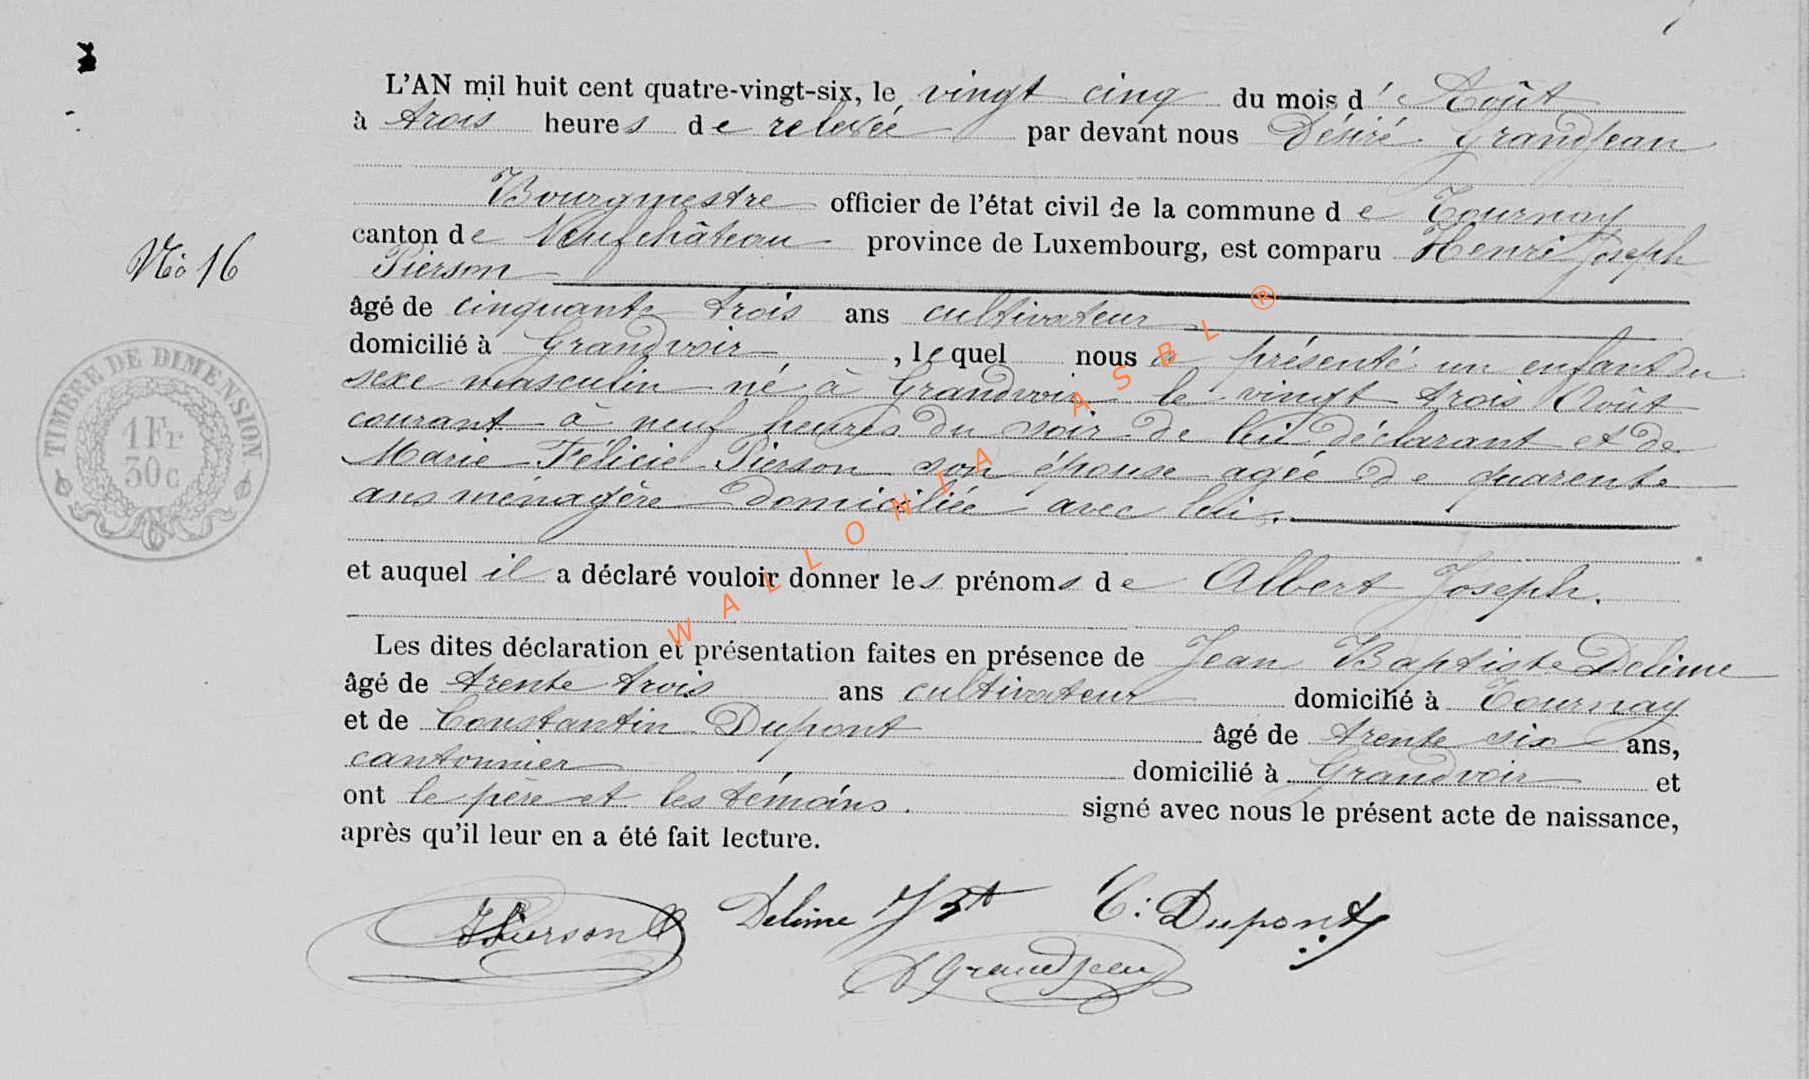 L'AN mil huit cent quatre-vingt-six, le vingt cinq du mois d'Août
à trois heures de relevée par devant nous Désiré Grandjean
Bourgmestre officier de l'état civil de la commune de Tournay
canton de Neufchâteau province de Luxembourg, est comparu Henri Joseph
No 16
Pierson
âgé de cinquante trois ans cultivateur
domicilié à Grandvoir, lequel nous a présenté un enfant du
sexe masculin né à Grandvoir le vingt trois Août
courant à neuf heures du soir de lui déclarant et de
Marie Félicie Pierson son épouse agée de quarente
ans ménagère domiciliée avec lui.
et auquel il a déclaré vouloir donner les prénoms de Albert Joseph.
Les dites déclaration et présentation faites en présence de Jean Baptiste Delime
âgé de trente trois ans cultivateur domicilié à Tournay
et de Constantin Dupont âgé de trente six ans,
cantonnier domicilié à Grandvoir et
ont le père et les témoins. signé avec nous le présent acte de naissance,
après qu'il leur en a été fait lecture.
HPierson Delime J Bt C: Dupont
D Grandjean
TIMBRE DE DIMENSION
1 Fr
30 c
WALLONIA ASBL ®